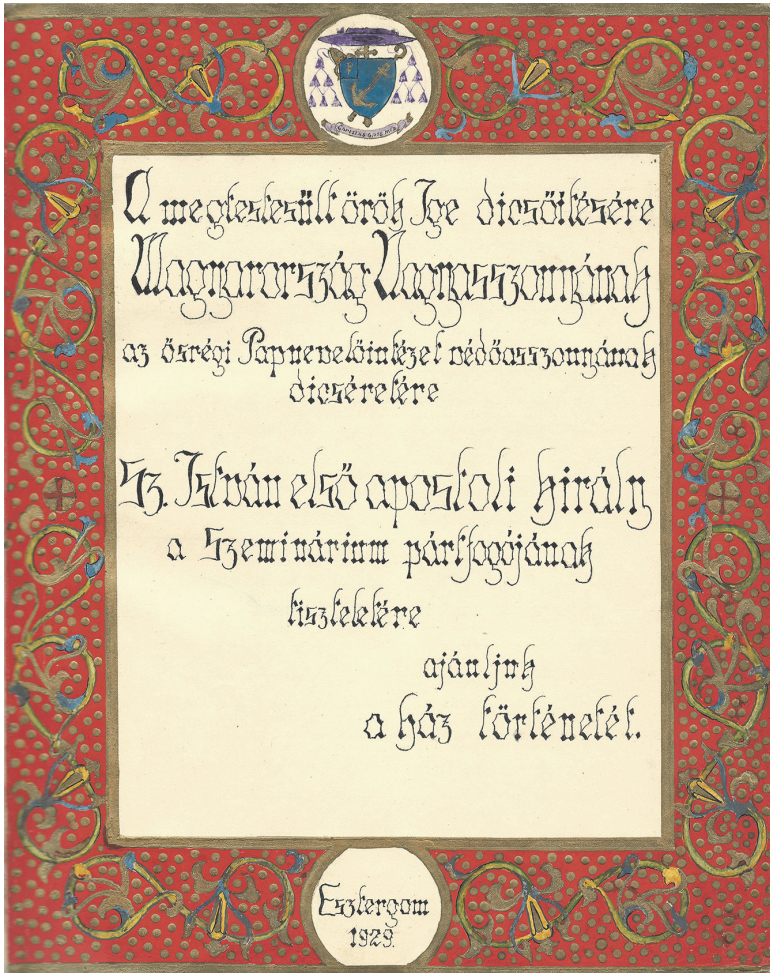 A megtestesült örök Ige dicsőítésére
Magyarország Nagyasszonyának
az ősrégi Papnevelőintézet védőasszonyának
dicséretére
Sz. István első apostoli király
a Szeminárium pártfogójának
tiszteletére
ajánljuk
a ház történetét.
Esztergom
1929.